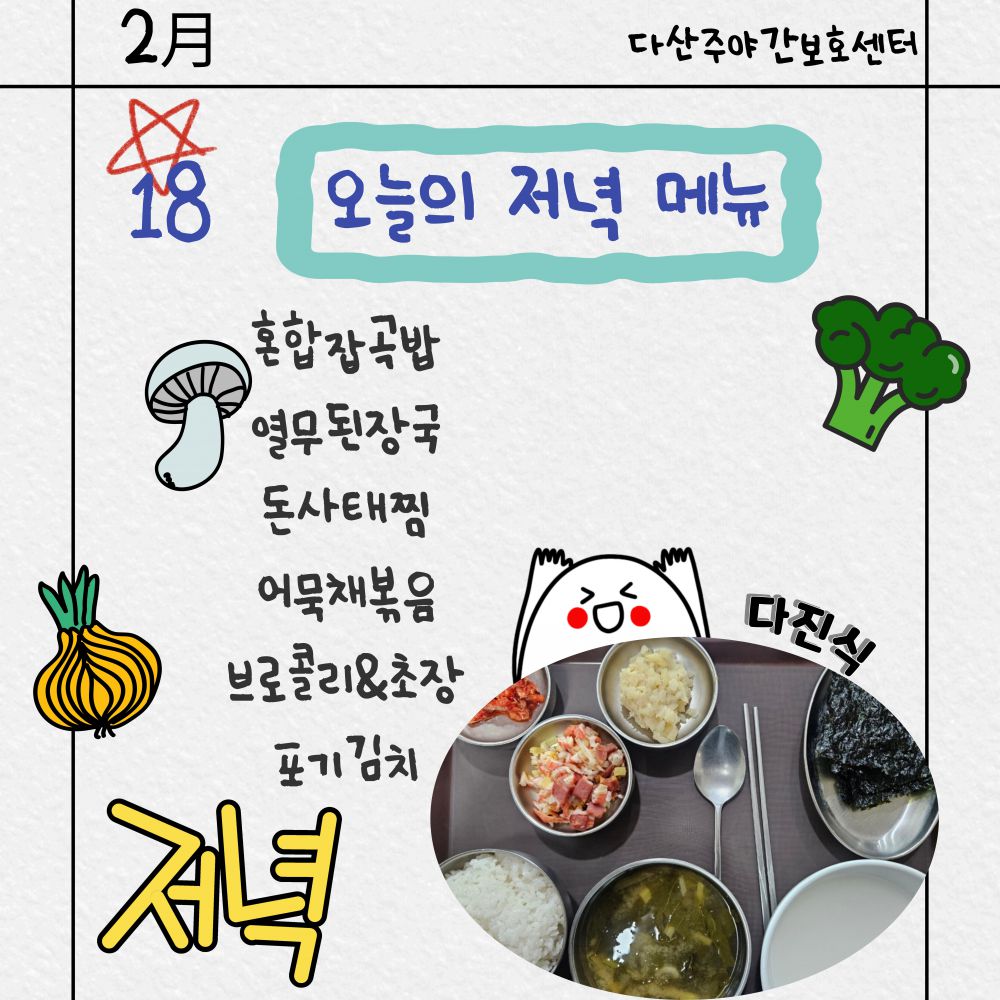 2月
다산주야간보호센터
18
오늘의 저녁 메뉴
혼합잡곡밥
열무된장국
돈사태찜
어묵채볶음
브로콜리&초장
포기김치
다진식
저녁